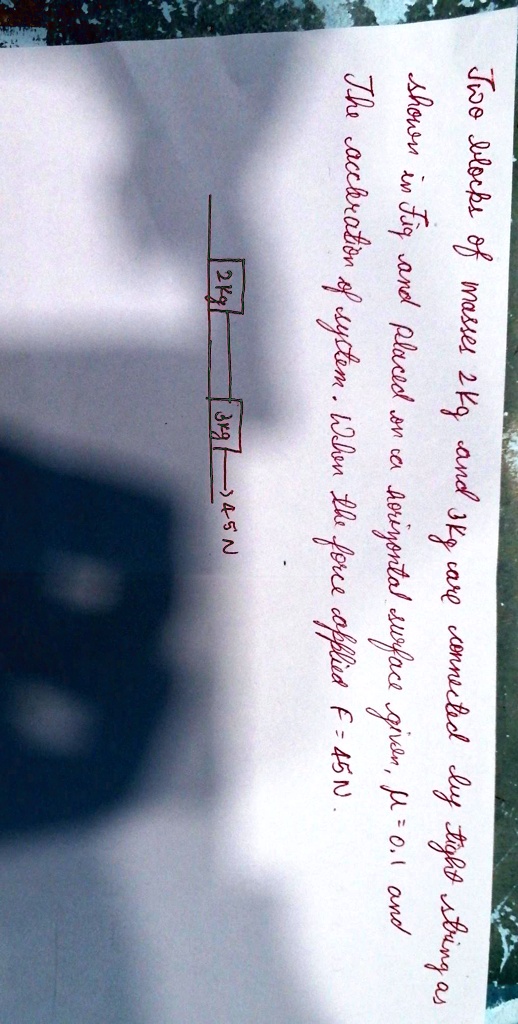 Two blocks of masses 2 Kg and 3Kg are connected by tight string as
shown in Fig and placed on a horizontal surface given, μ = 0.1 and
The accleration of system. When the force applied F = 45 N.
2 Kg 3 Kg → 45 N